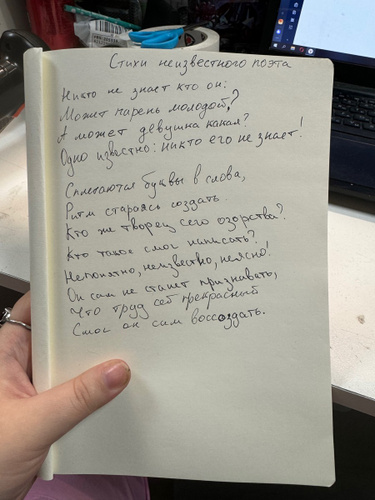 Стихи неизвестного поэта
Никто не знает кто он:
Может парень молодой?
А может девушка какая?
Одно известно: никто его не знает!
Сплетаются буквы в слова,
Ритм стараясь создать.
Кто же творец сего озорства?
Кто такое смог написать?
Непонятно, неизвестно, неясно!
Он сам не станет признавать,
Что труд сей прекрасный
Смог он сим воссоздать.